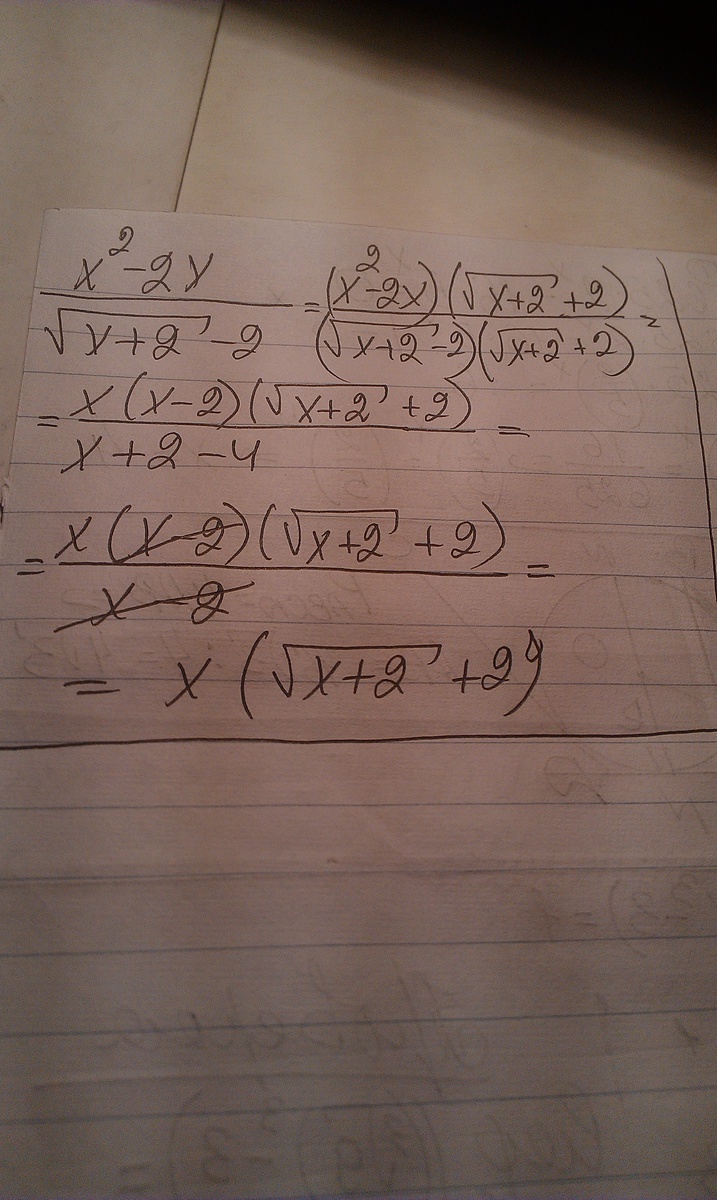 x²-2x / √(x+2) -2 = (x²-2x)(√(x+2) +2) / (√(x+2) -2)(√(x+2) +2) =
= x(x-2)(√(x+2) +2) / x+2-4 =
= x(x-2)(√(x+2) +2) / x-2 =
= x(√(x+2) +2)